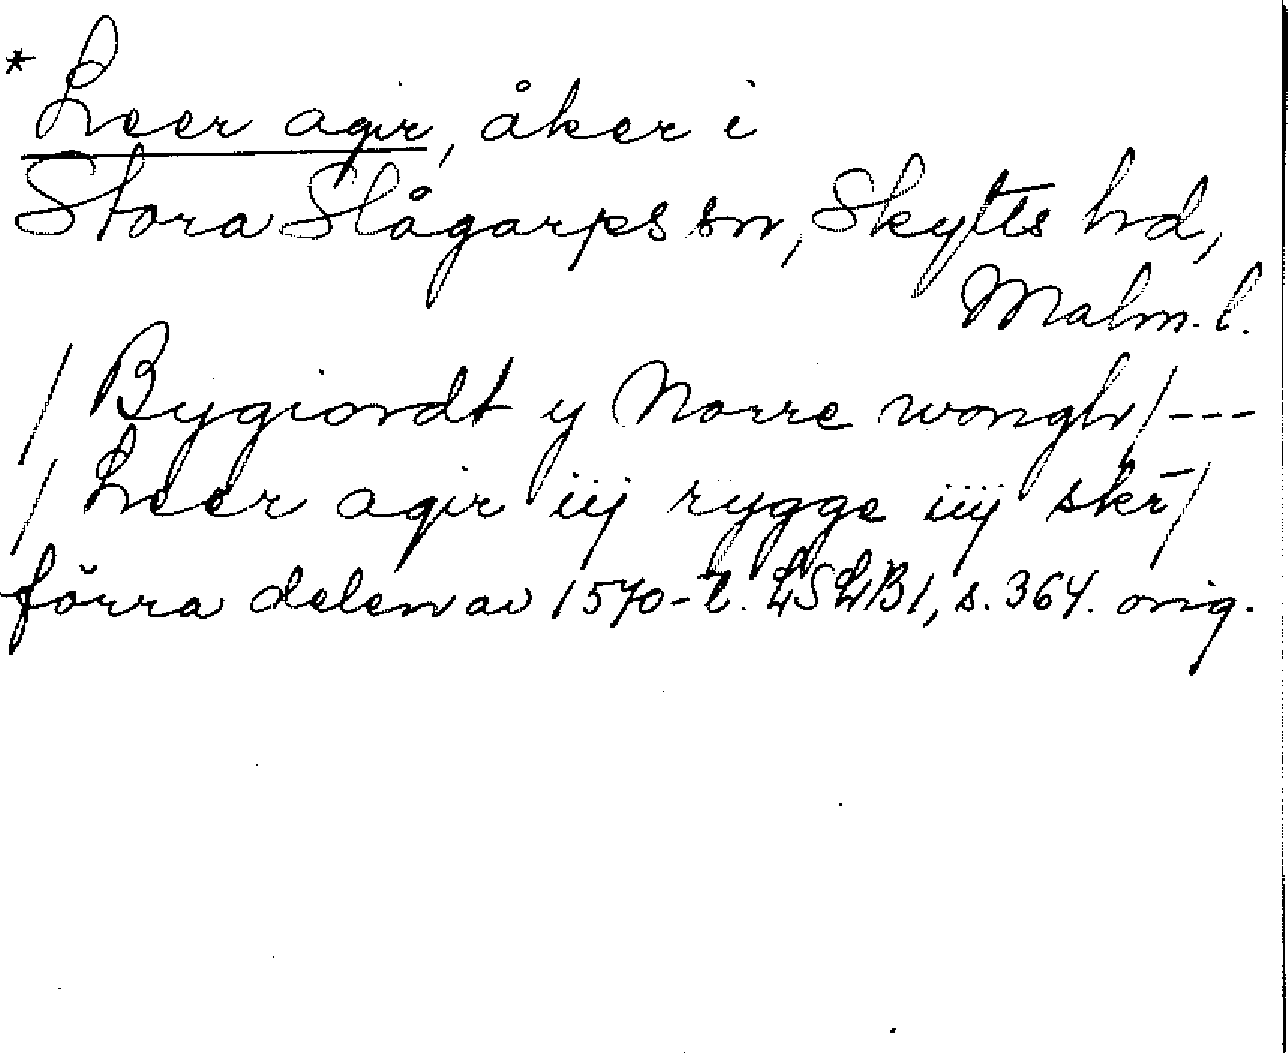 * Leer agir, åker i
Stora Slågarps sn, Skytts hd,
Malm. l.
/ Bygiordt y Norre wongh / ---
/ Leer agir iij rygge iiij skr̄ /
förra delen av 1570-t. LSLB1, s. 364. orig.